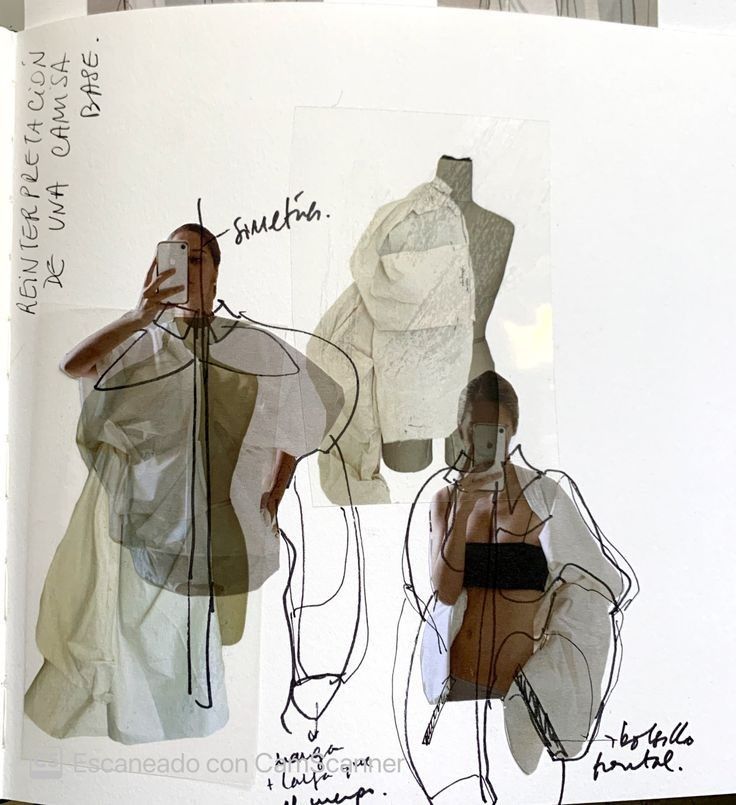 REINTERPRETACIÓN
DE UNA CAMISA
BASE.
simetría.
manga
+ larga que
el cuerpo.
bolsillo
frontal.
Escaneado con CamScanner